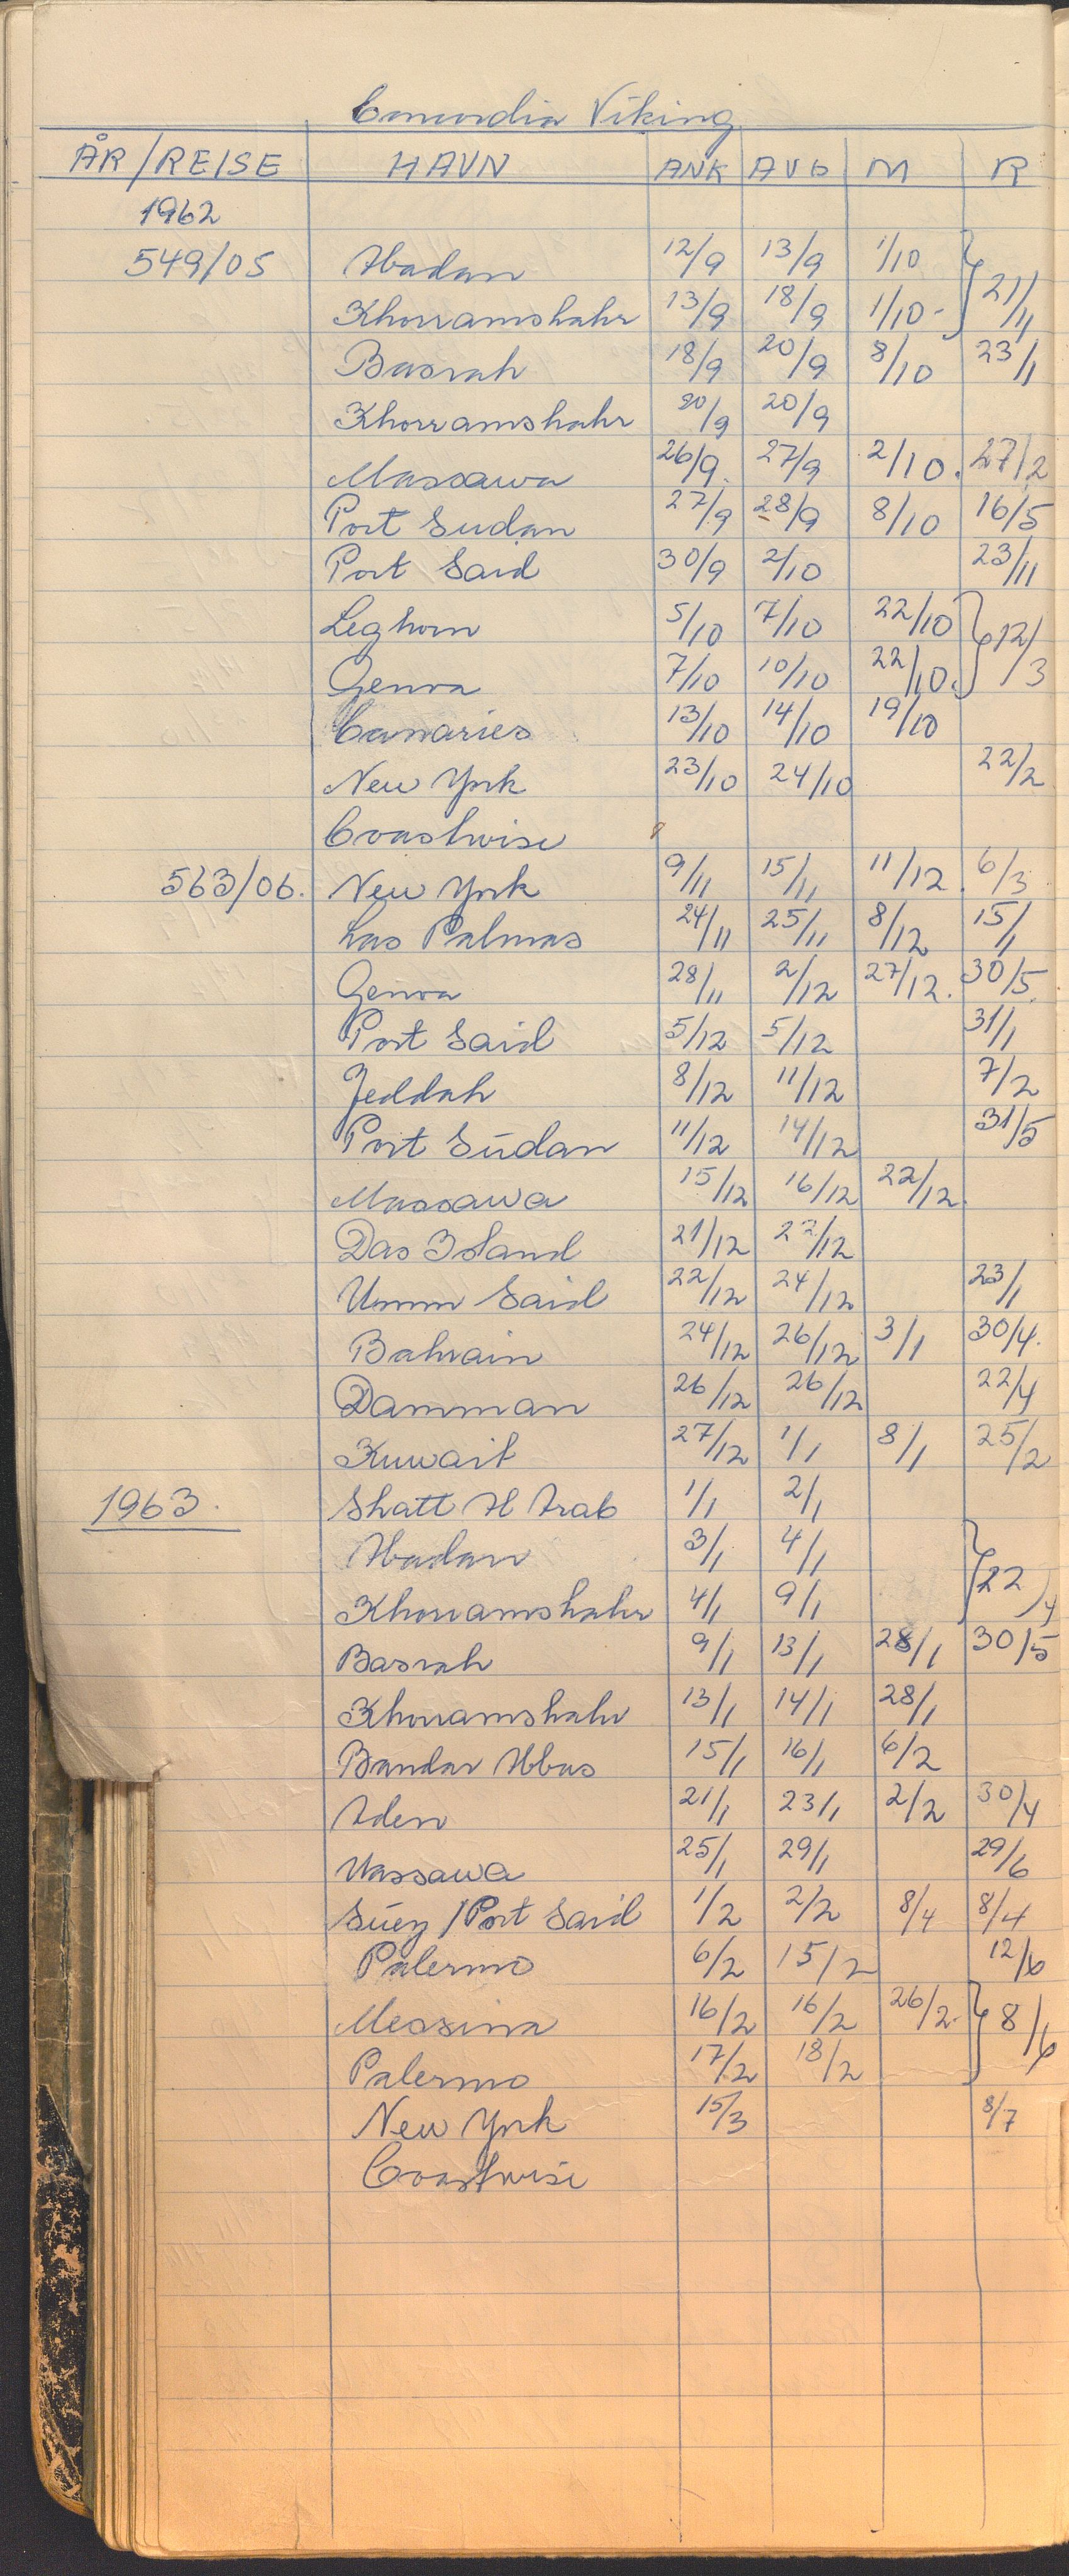 Concordia Viking
ÅR/REISE HAVN ANK AVG M R
1962
549/05 Abadan 12/9 13/9 1/10 } 21/11
Khorramshahr 13/9 18/9 1/10-
Basrah 18/9 20/9 8/10 23/1
Khorramshahr 20/9 20/9
Massawa 26/9. 27/9 2/10. 27/2
Port Sudan 27/9 28/9 8/10 16/5
Port Said 30/9 2/10 23/11
Leghorn 5/10 7/10 22/10 } 12/3
Genoa 7/10 10/10 22/10.
Canaries 13/10 14/10 19/10
New York 23/10 24/10 22/2
Coastwise
563/06. New York 9/11 15/11 11/12. 6/3
Las Palmas 24/11 25/11 8/12 15/1
Genoa 28/11 2/12 27/12. 30/5.
Port Said 5/12 5/12 31/1
Jeddah 8/12 11/12 7/2
Port Sudan 11/12 14/12 31/5
Massawa 15/12 16/12 22/12.
Das Island 21/12 22/12
Umm Said 22/12 24/12 23/1
Bahrain 24/12 26/12 3/1 30/4.
Damman 26/12 26/12 22/4
Kuwait 27/12 1/1 8/1 25/2
1963. Shatt Al Arab 1/1 2/1
Abadan 3/1 4/1 } 22/4
Khorramshahr 4/1 9/1
Basrah 9/1 13/1 28/1 30/5
Khorramshahr 13/1 14/1 28/1
Bandar Abbas 15/1 16/1 6/2
Aden 21/1 23/1 2/2 30/4
Massawa 25/1 29/1 29/6
Suez / Port Said 1/2 2/2 8/4 8/4
Palermo 6/2 15/2 12/6
Messina 16/2 16/2 26/2. } 8/6
Palermo 17/2 18/2
New York 15/3 8/7
Coastwise